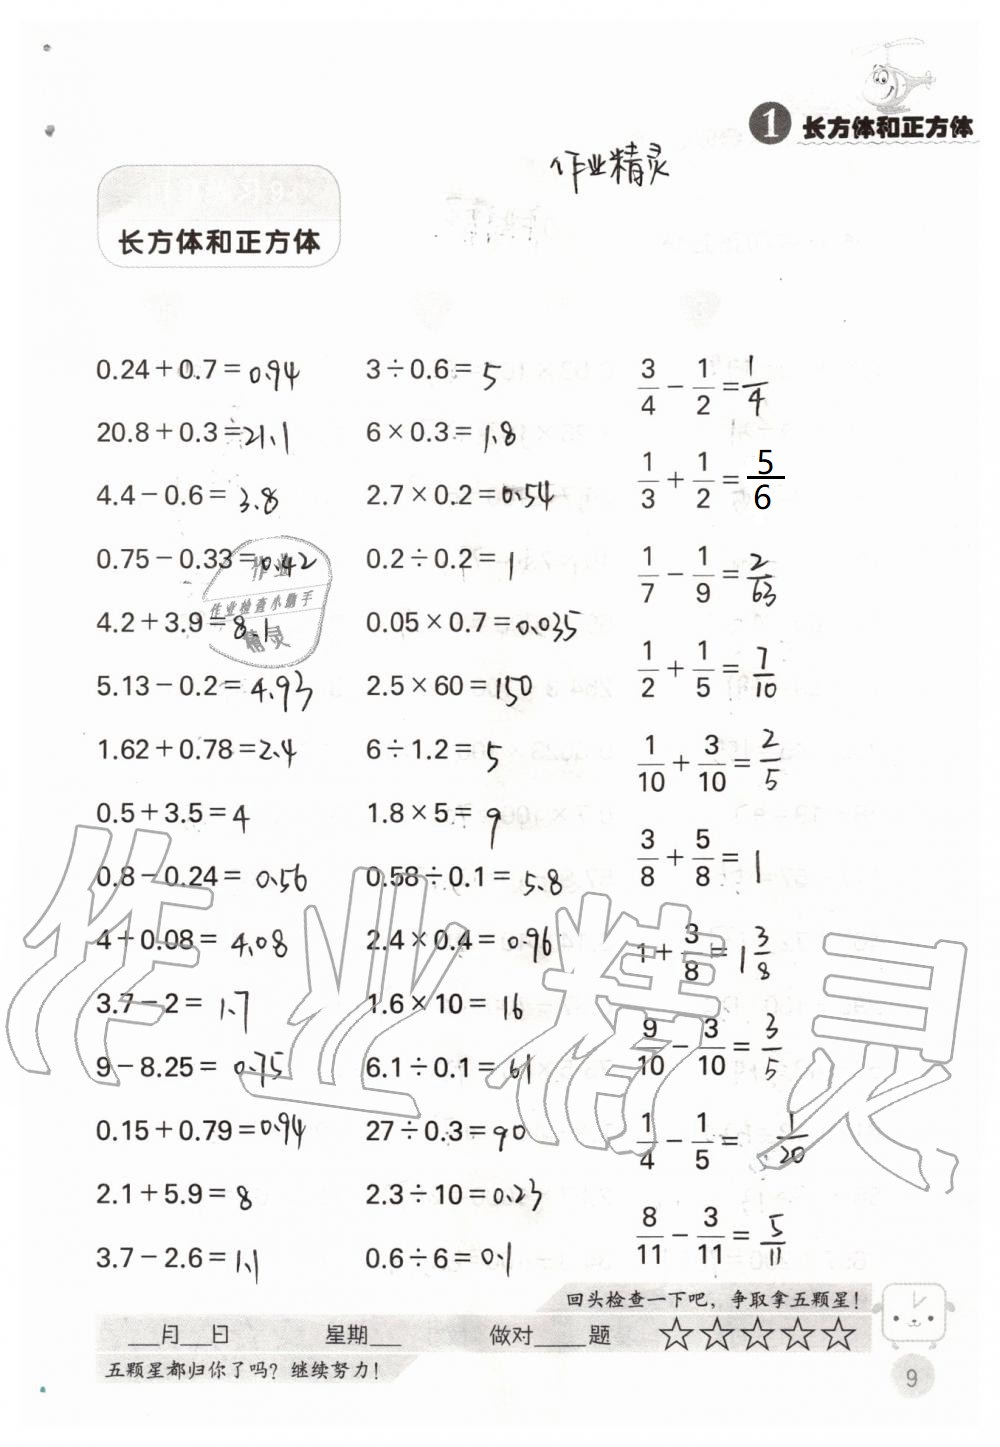 1 长方体和正方体
作业精灵
长方体和正方体
0.24+0.7=0.94
20.8+0.3=21.1
4.4-0.6=3.8
0.75-0.33=0.42
4.2+3.9=8.1
5.13-0.2=4.93
1.62+0.78=2.4
0.5+3.5=4
0.8-0.24=0.56
4+0.08=4.08
3.7-2=1.7
9-8.25=0.75
0.15+0.79=0.94
2.1+5.9=8
3.7-2.6=1.1
3÷0.6=5
6×0.3=1.8
2.7×0.2=0.54
0.2÷0.2=1
0.05×0.7=0.035
2.5×60=150
6÷1.2=5
1.8×5=9
0.58÷0.1=5.8
2.4×0.4=0.96
1.6×10=16
6.1÷0.1=61
27÷0.3=90
2.3÷10=0.23
0.6÷6=0.1
3/4-1/2=1/4
1/3+1/2=5/6
1/7-1/9=2/63
1/2+1/5=7/10
1/10+3/10=2/5
3/8+5/8=1
1+3/8=1 3/8
9/10-3/10=3/5
1/4-1/5=1/20
8/11-3/11=5/11
作业
作业检查小助手
精灵
作业精灵
回头检查一下吧，争取拿五颗星！
___月___日 星期___ 做对____题 ☆☆☆☆☆
五颗星都归你了吗？继续努力！
9